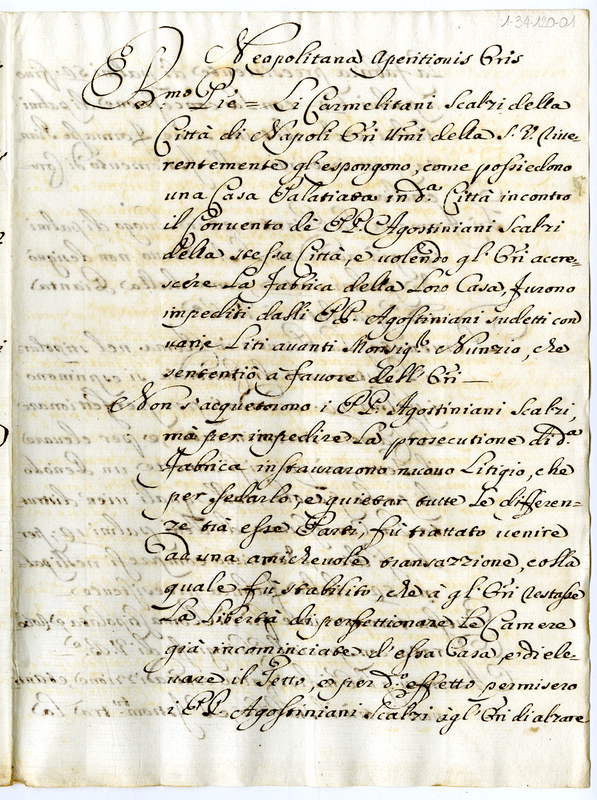 1-34-120-01
Neapolitana Aperitionis Oris
E.mo Pre = Li Carmelitani Scalzi della
Città di Napoli Ori Umi della S. V. rive=
rentemente gl'espongono, come possiedono
una Casa Palatiata in d.ª Città incontro
il Convento dè PP. Agostiniani Scalzi
della stessa Città, e volendo gl'Ori accre=
scére La fabrica della Loro Casa, furono
impediti dalli PP. Agostiniani sudetti con
varie Liti avanti Monsig.r Nunzio, che
sententiò à favore dell'Ori —
Non s'acquetorono i PP. Agostiniani Scalzi,
mà per impedire La prosecutione di d.ª
fabrica instaurarono nuovo Litigio, che
per sedarlo, e quietar tutte Le differen-
ze trà esse Parti, fù trattato venire
ad una amichevole transazzione, colla
quale fù stabilito, che à gl'Ori restasse
La libertà di perfettionare Le Camere
già incominciate d'essa Casa, e di ele=
vare il Tetto, e per d.º effetto permisero
i PP. Agostiniani Scalzi à gl'Ori di alzare